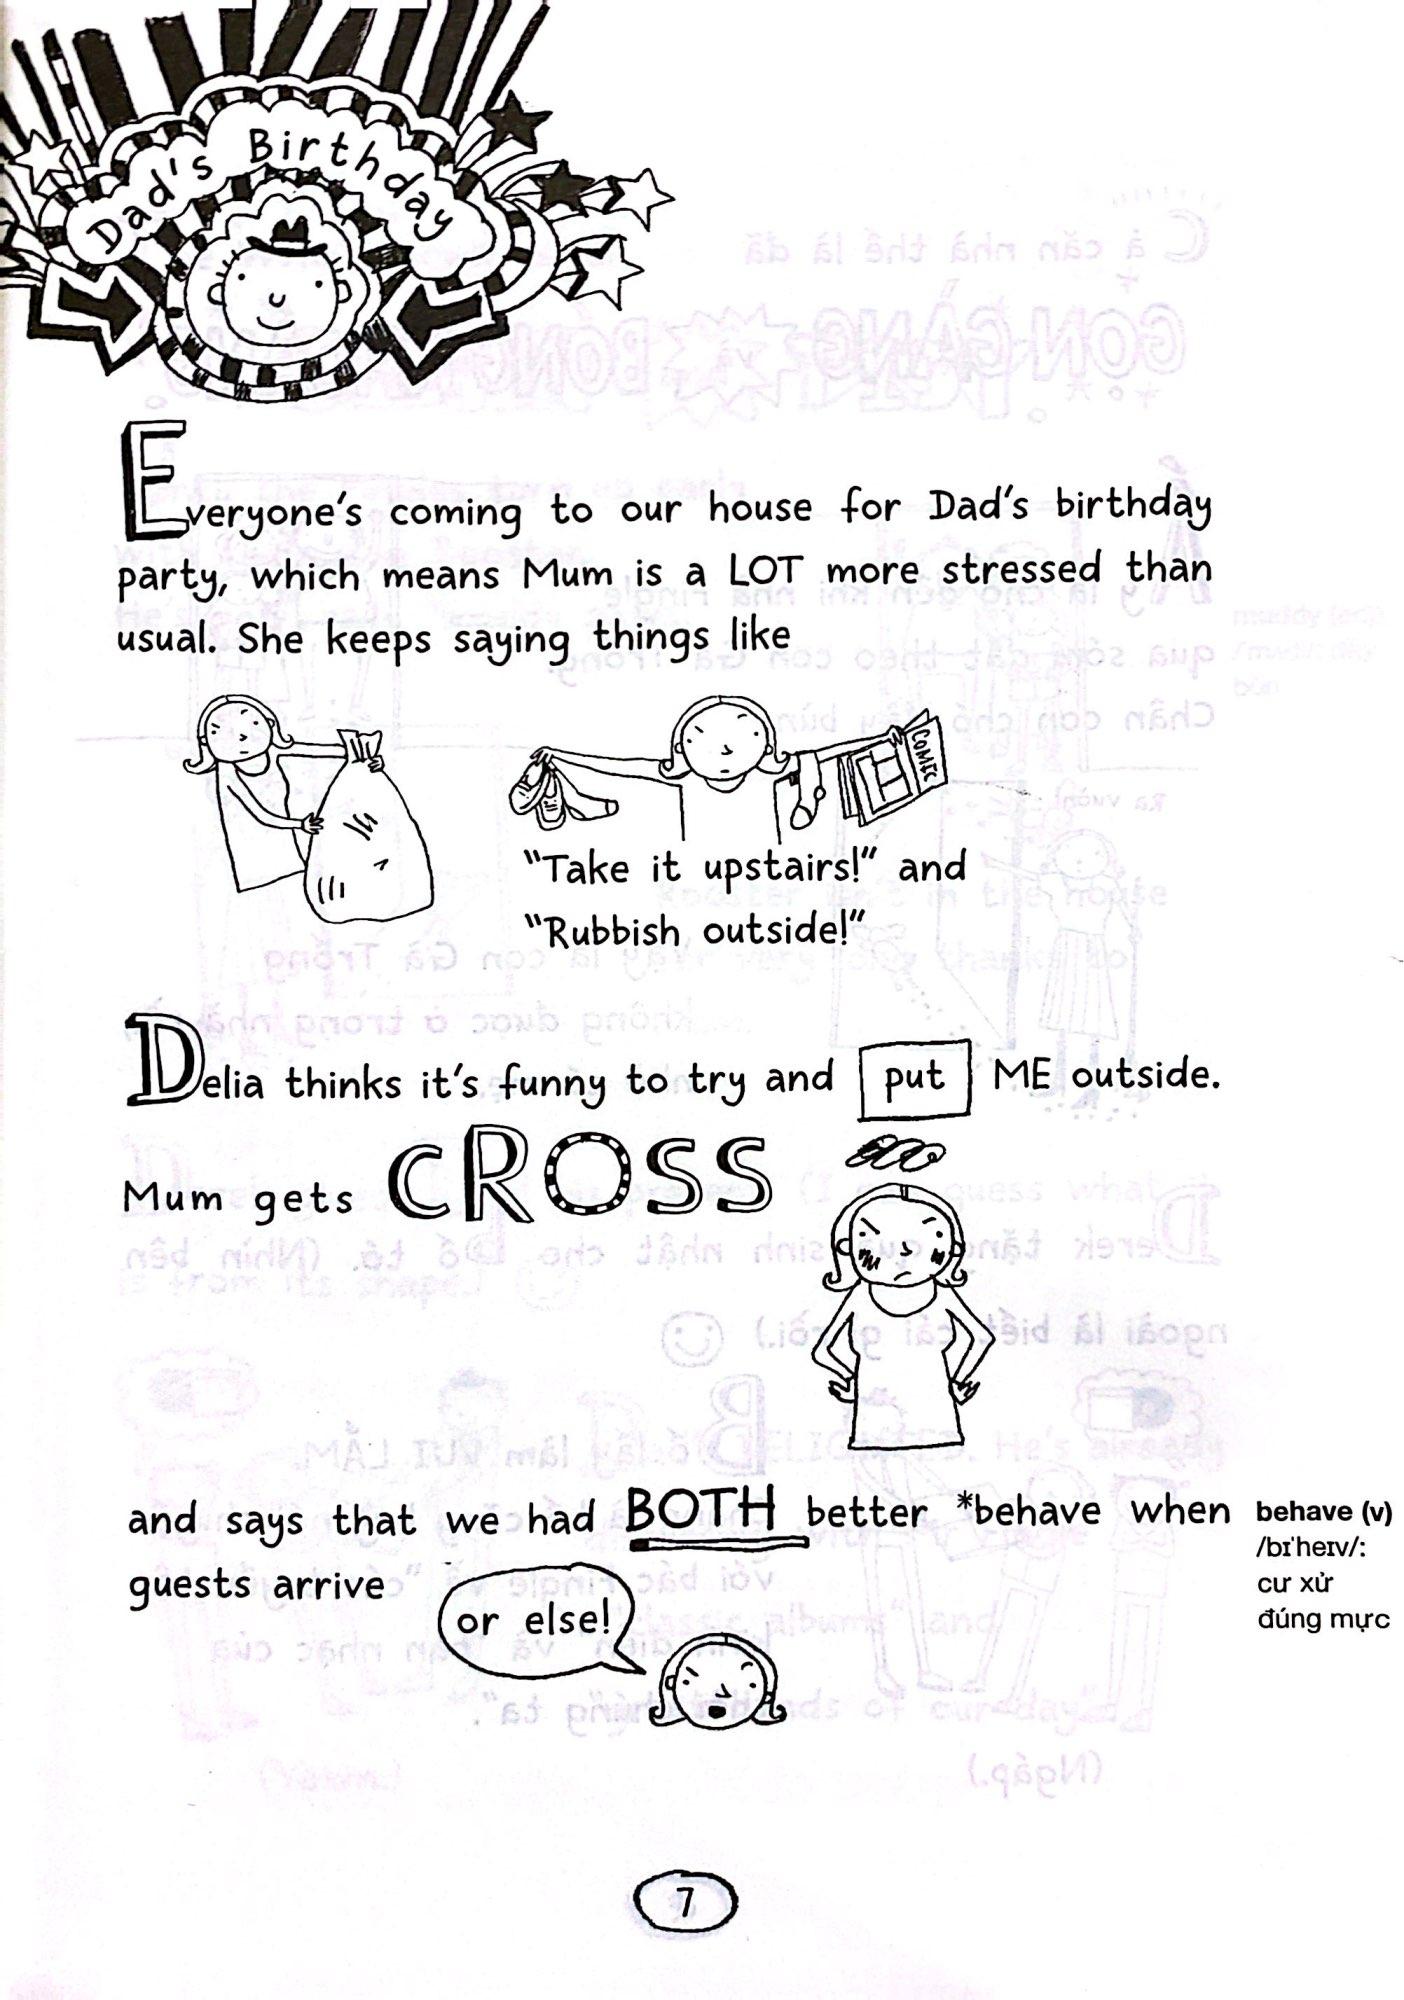 Dad's Birthday
Everyone's coming to our house for Dad's birthday
party, which means Mum is a LOT more stressed than
usual. She keeps saying things like
COMIC
"Take it upstairs!" and
"Rubbish outside!"
Delia thinks it's funny to try and put ME outside.
Mum gets CROSS
and says that we had BOTH better *behave when
guests arrive
or else!
behave (v)
/bɪˈheɪv/:
cư xử
đúng mực
7